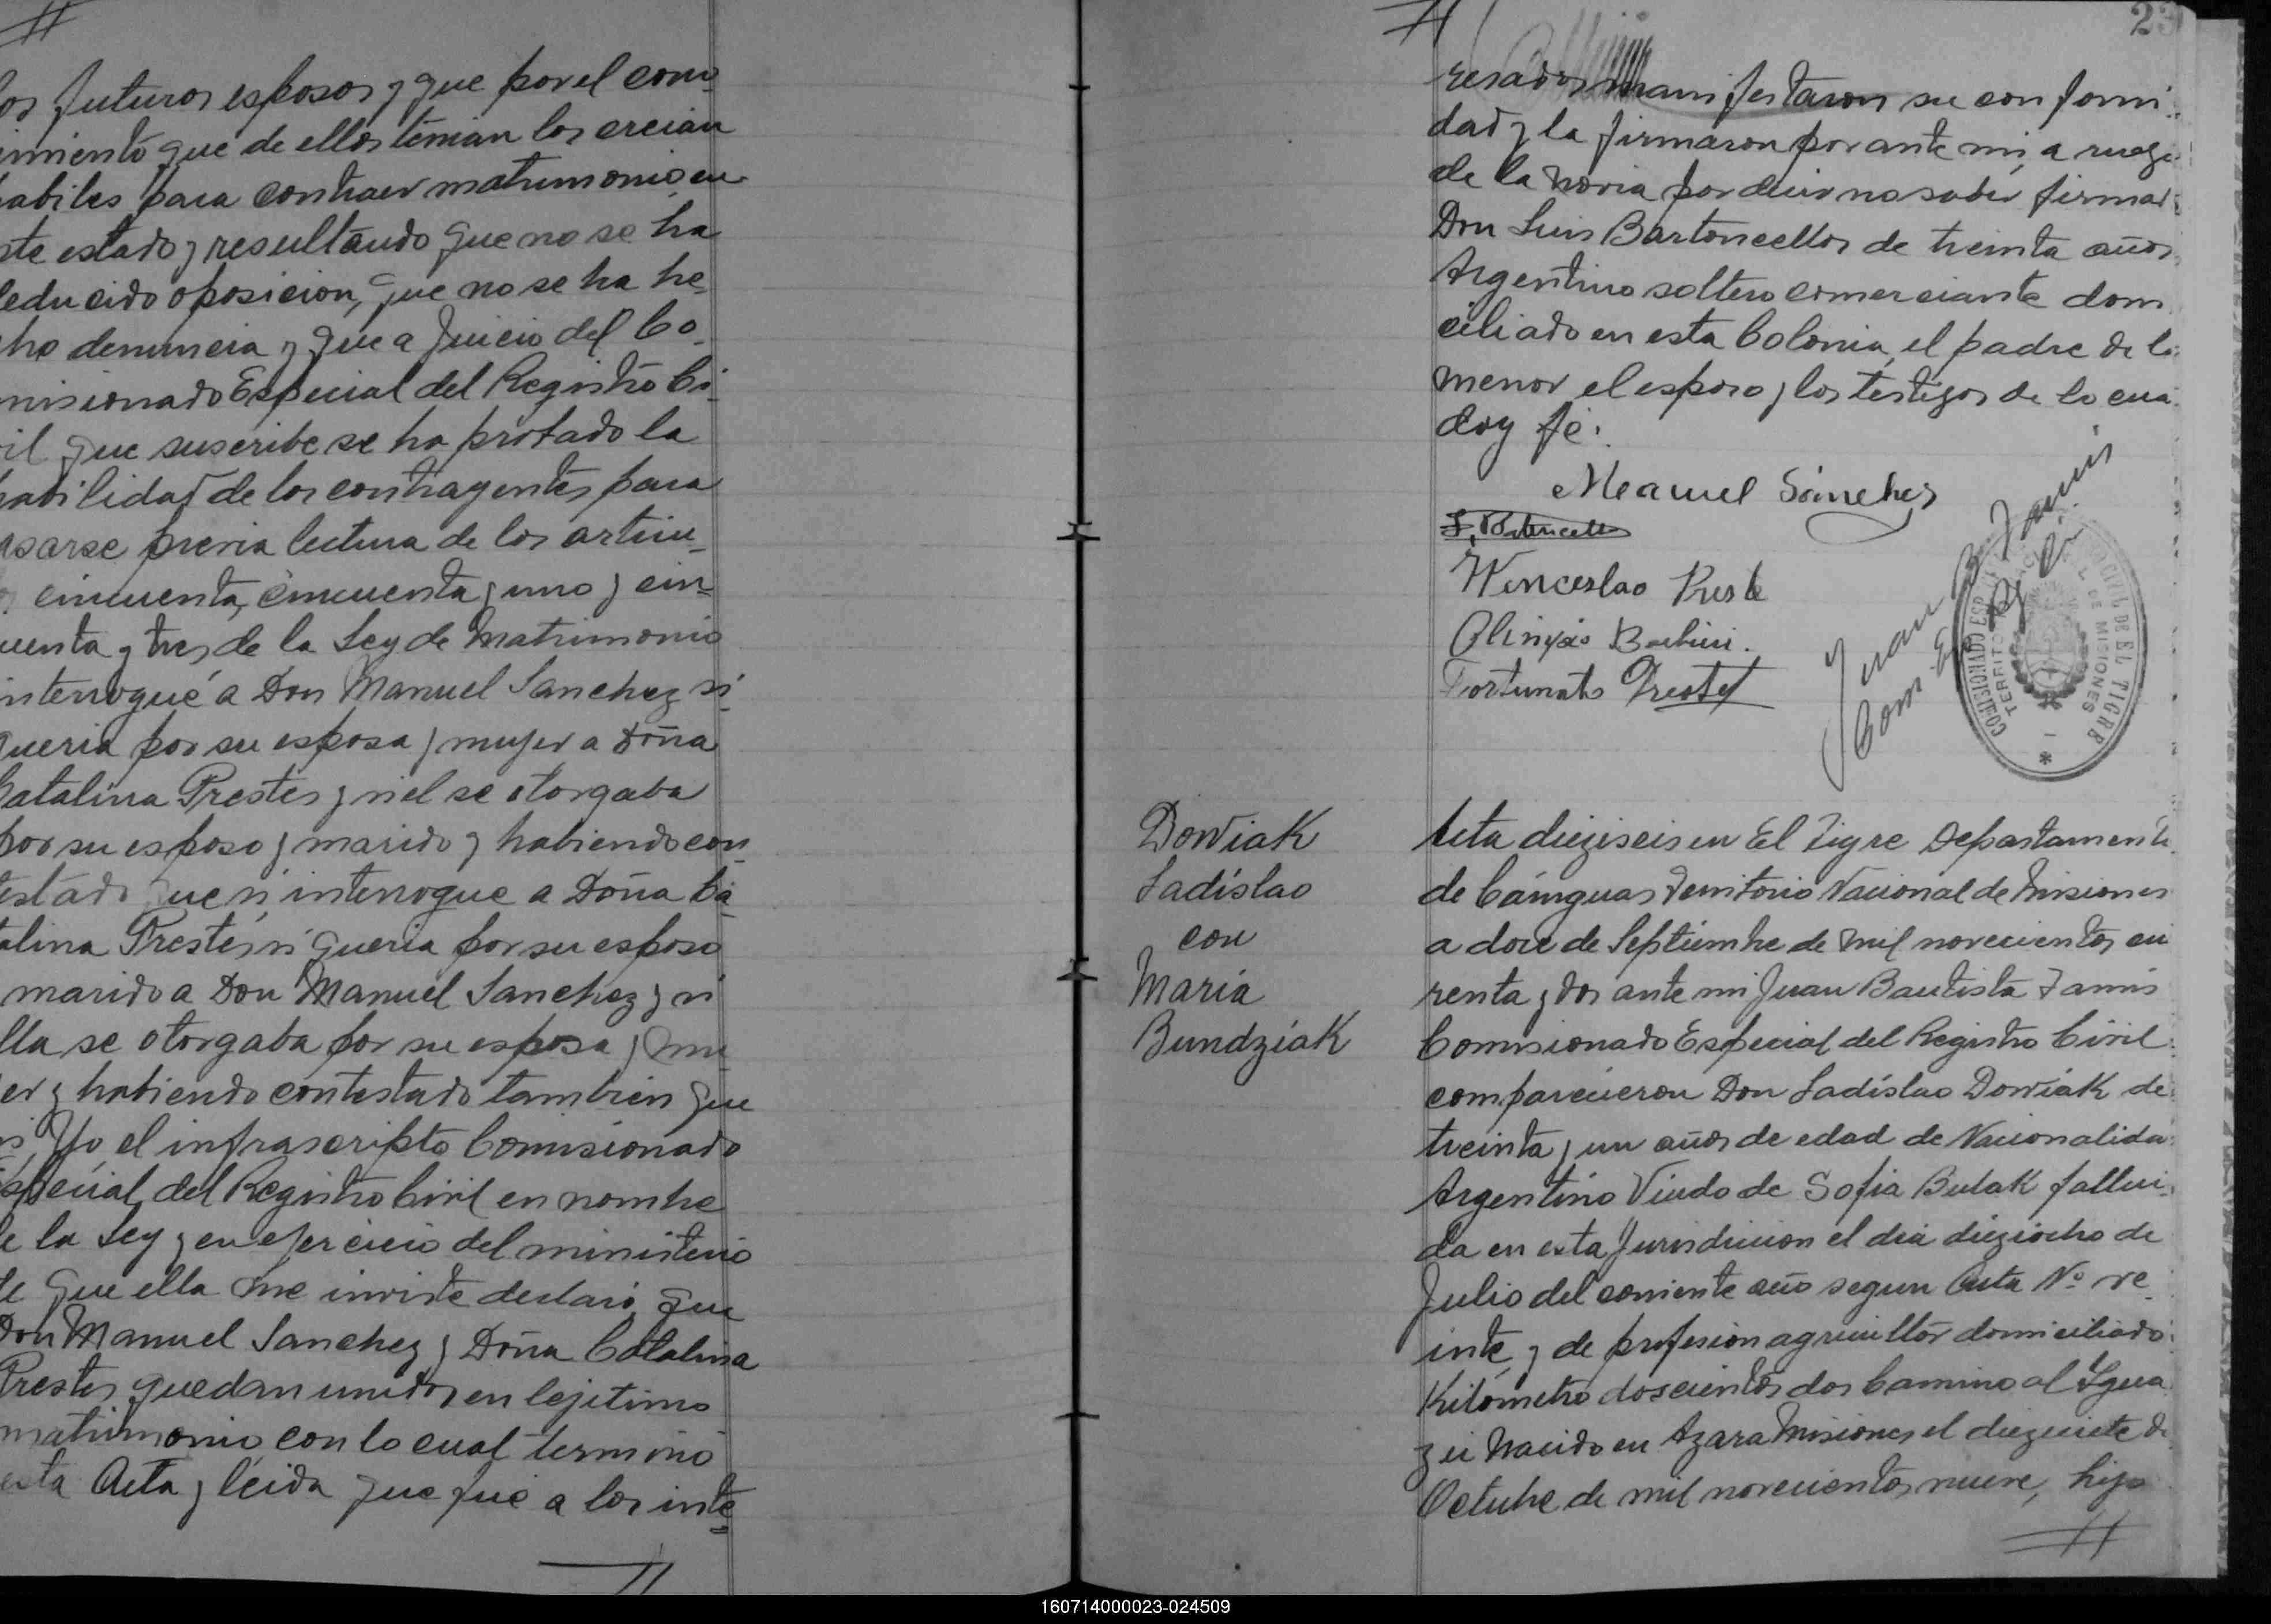 los futuros esposos y que por el cono
cimiento que de ellos tenian los creian
habiles para contraer matrimonio, en
este estado y resultando que no se ha
deducido oposicion, que no se ha he-
cho denuncia y que a juicio del Co-
misionado Especial del Registro Ci-
vil que suscribe se ha probado la
habilidad de los contrayentes para
casarse previa lectura de los articu-
los cincuenta, cincuenta y uno y cin-
cuenta y tres de la Ley de Matrimonio
interrogué a Don Manuel Sanchez si
queria por su esposa y mujer a Doña
Catalina Prestes y si el se otorgaba
por su esposo y marido y habiendo con-
testado que si, interrogue a Doña Ca-
talina Prestes si queria por su esposo
marido a Don Manuel Sanchez y si
ella se otorgaba por su esposa y mu-
jer y habiendo contestado tambien que
si, Yo, el infrascripto Comisionado
Especial del Registro Civil en nombre
de la Ley y en ejercicio del ministerio
de que ella me inviste declaró que
Don Manuel Sanchez y Doña Catalina
Prestes quedan unidos en lejitimo
matrimonio con lo cual terminó
esta Acta y leida que fué a los inte-
resados manifestaron su conformi-
dad y la firmaron por ante mi, a ruego
de la novia por decir no saber firmar
Don Luis Bartoncellos de treinta años
Argentino soltero comerciante domi
ciliado en esta Colonia, el padre de la
menor el esposo y los testigos de lo cual
doy fé.
Manuel Sánchez
Wenceslao
Fortunato Prestes
Juan B. Jamis
COMISIONADO ESP. REGISTRO CIVIL DE EL TIGRE
TERRITORIO NACIONAL DE MISIONES
Dowiak
Ladislao
con
Maria
Bundziak
Acta dieziseis en El Tigre Departamento
de Cainguas Territorio Nacional de Misiones
a doce de Septiembre de mil novecientos cua
renta y dos ante mi Juan Bautista Jamis
Comisionado Especial del Registro Civil
comparecieron Don Ladislao Dowiak de
treinta y un años de edad de Nacionalidad
Argentino Viudo de Sofia Bulak falleci-
da en esta Jurisdiccion el dia dieziocho de
Julio del corriente año segun Acta Nº ve-
inte, y de profesion agricultor domiciliado
Kilómetro doscientos dos Camino al Igua
zú Nacido en Azara Misiones el diezisiete de
Octubre de mil novecientos nueve, hijo
160714000023-024509